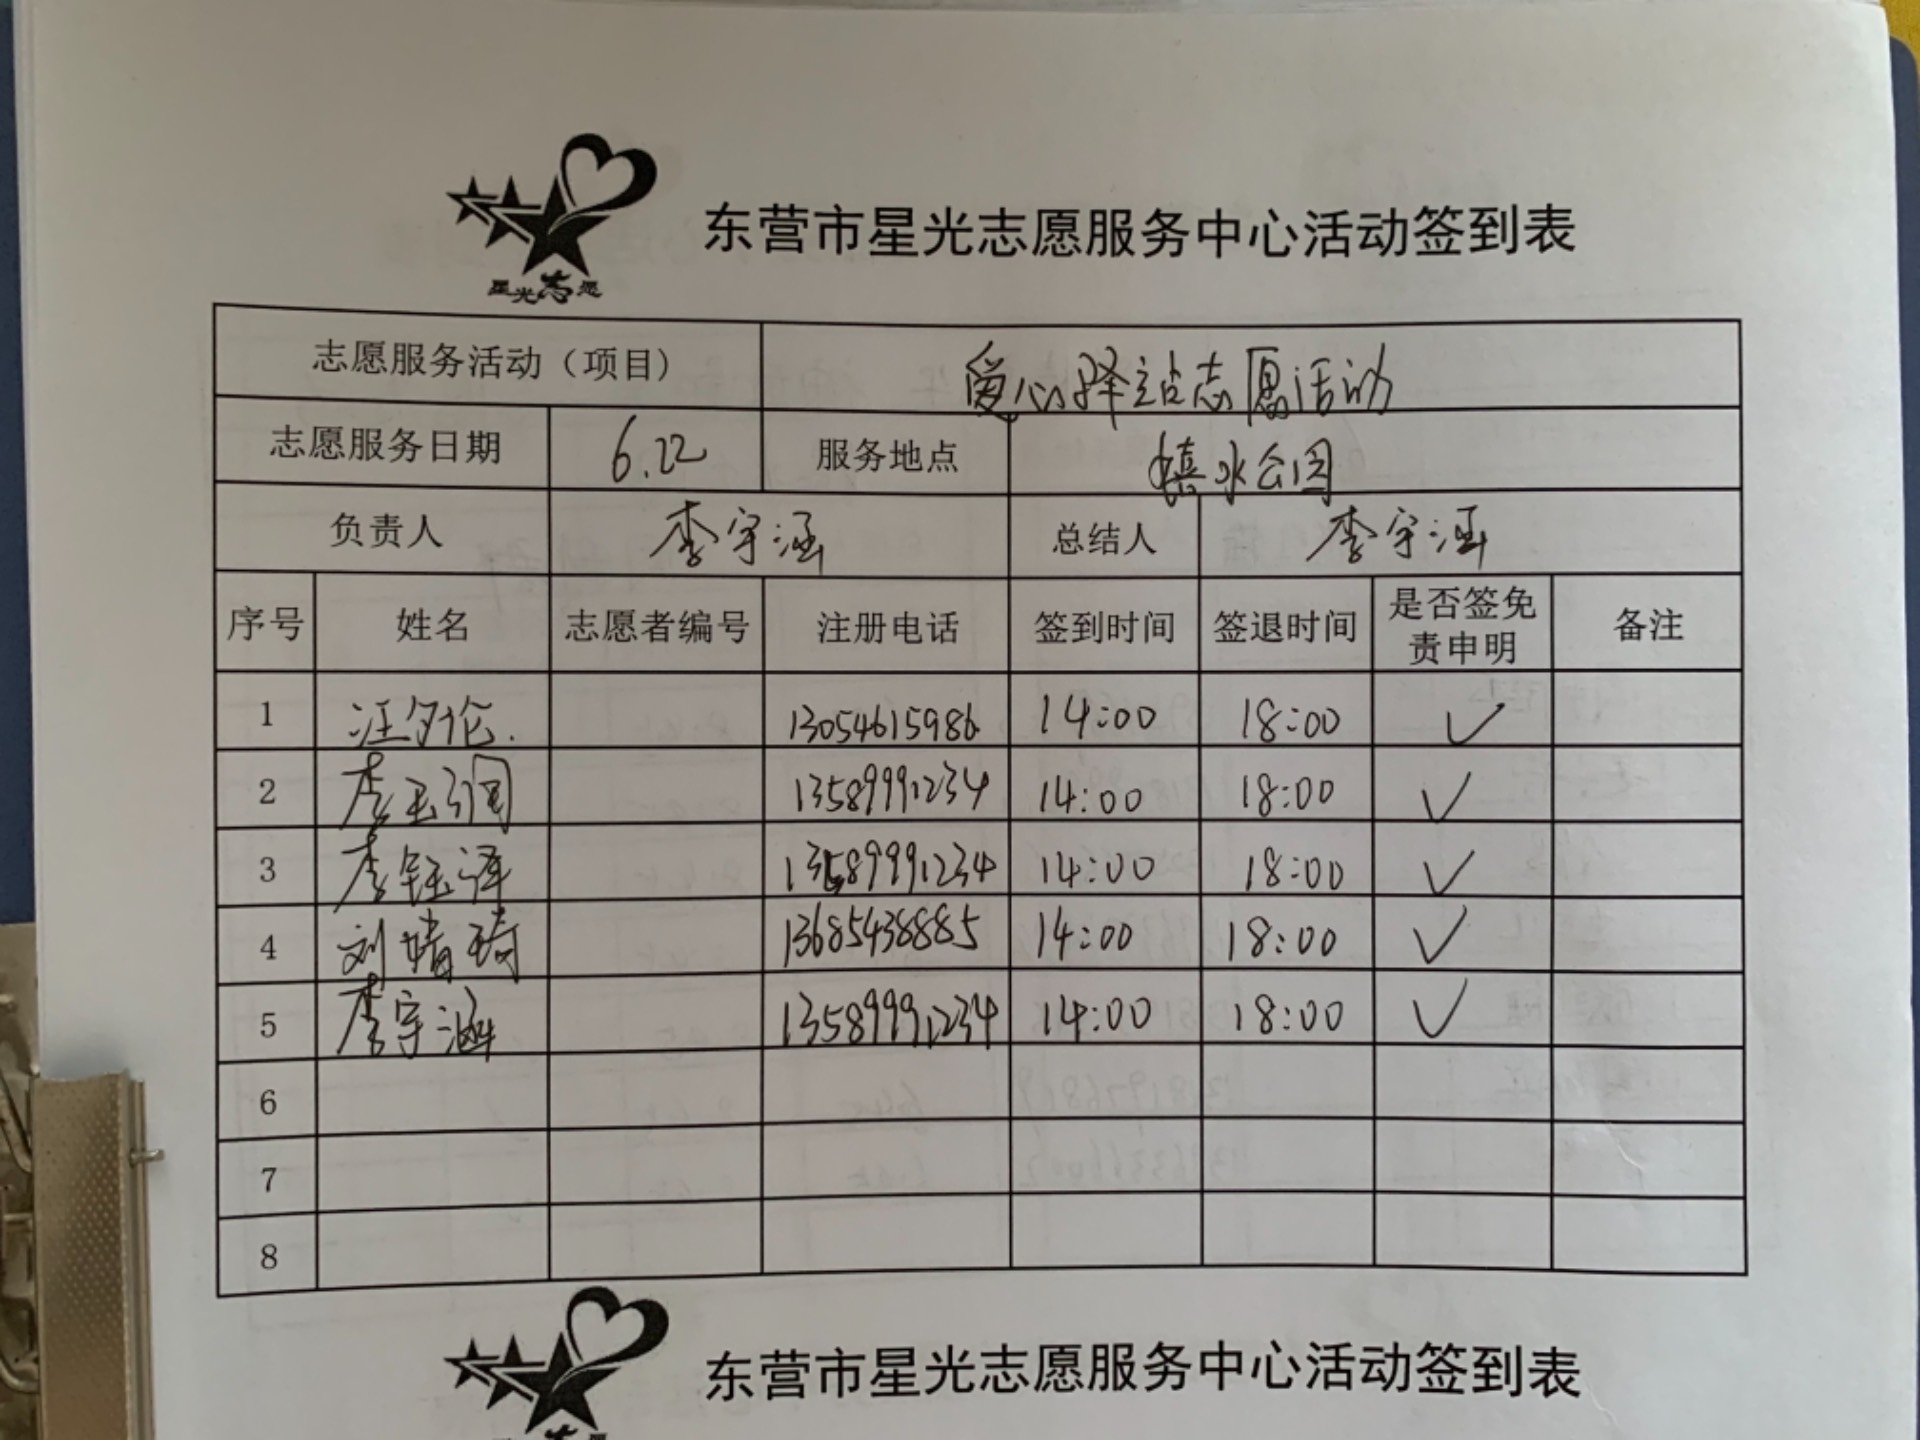 星光志愿
东营市星光志愿服务中心活动签到表
志愿服务活动（项目） 爱心驿站志愿活动
志愿服务日期 6.22 服务地点 嬉水公园
负责人 李宇涵 总结人 李宇涵
序号 姓名 志愿者编号 注册电话 签到时间 签退时间 是否签免责申明 备注
1 汪夕伦. 13054615986 14:00 18:00 ✓
2 李玉润 13589991234 14:00 18:00 ✓
3 李钰泽 13589991234 14:00 18:00 ✓
4 刘婧琦 13685438885 14:00 18:00 ✓
5 李宇涵 13589991234 14:00 18:00 ✓
6
7
8
东营市星光志愿服务中心活动签到表